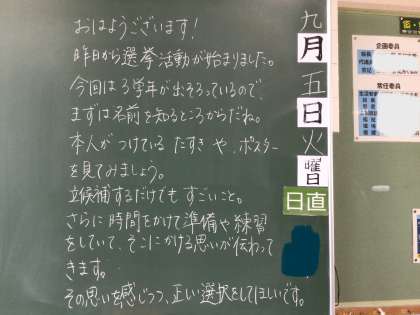 おはようございます!
昨日から選挙活動が始まりました。
今回は3学年が出そろっているので、
まずは名前を知るところからだね。
本人がつけている たすき や、ポスター
を見てみましょう。
立候補するだけでも すごいこと。
さらに 時間をかけて準備や練習
をしていて、そこにかける思いが伝わって
きます。
その思いを感じつつ、正しい選択をしてほしいです。
九
月
五
日
火
曜
日
日直
企画委員
常任委員